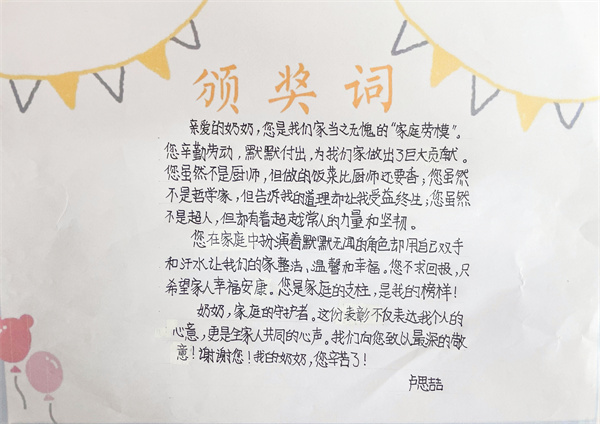 颁奖词
亲爱的奶奶，您是我们家当之无愧的“家庭劳模”。
您辛勤劳动，默默付出，为我们家做出了巨大贡献。
您虽然不是厨师，但做的饭菜比厨师还要香；您虽然
不是哲学家，但告诉我的道理却让我受益终生；您虽然
不是超人，但却有着超越常人的力量和坚韧。
您在家庭中扮演着默默无闻的角色却用自己双手
和汗水让我们的家整洁、温馨和幸福。您不求回报，只
希望家人幸福安康。您是家庭的支柱，是我的榜样！
奶奶，家庭的守护者。这份表彰不仅表达我个人的
心意，更是全家人共同的心声。我们向您致以最深的敬
意！谢谢您！我的奶奶，您辛苦了！
卢思喆